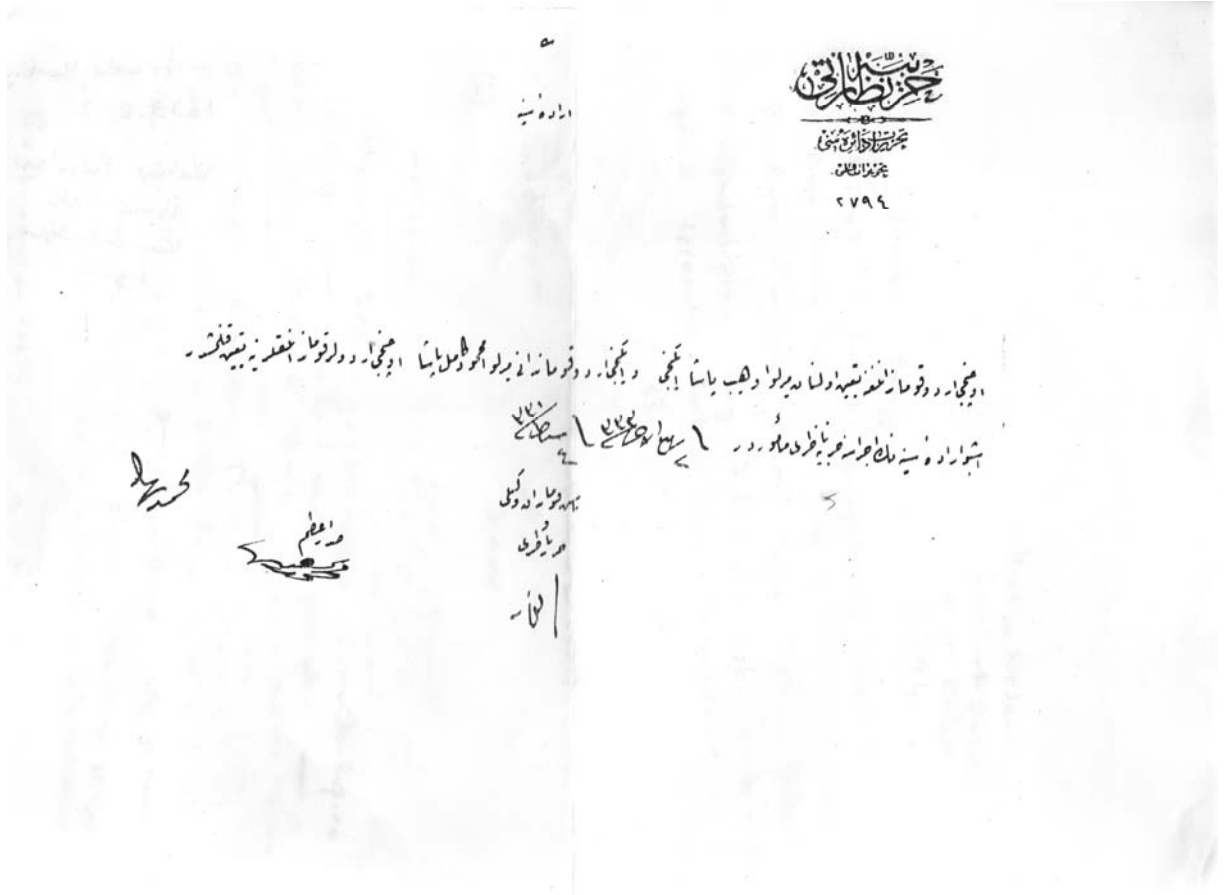 حربیه نظارتی
تحریرات دائره‌سی
٢٧٩٤
اراده سنیه
اوچنجی اردو قوماندانلغنه تعیین اولنان میرلوا وهیب پاشا ایکنجی و ایکنجی اردو قوماندانی میرلوا محمود کامل پاشا اوچنجی اردولر قوماندانلقلرینه تعیین قلنمشدر
اشبو اراده سنیه‌نك اجراسنه حربیه ناظری مأموردر ٣٣١
باش قوماندان وکیلی
و
حربیه ناظری
صدر اعظم
محمد رشاد